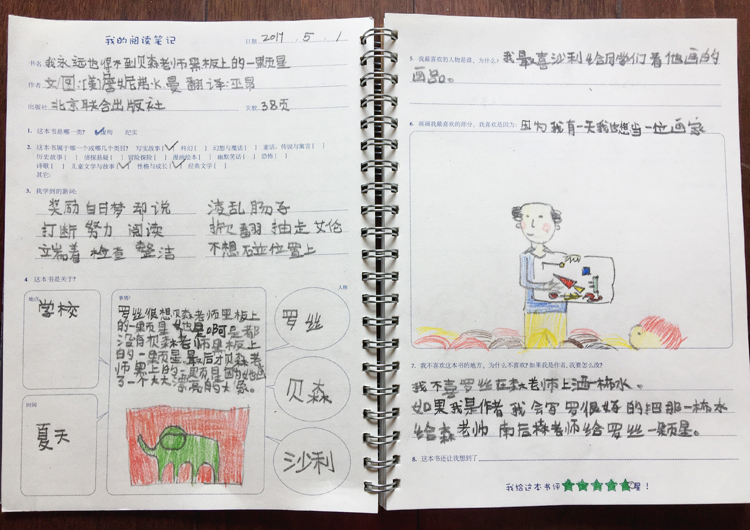 我的阅读笔记
日期 2017 . 5 . 1
书名 我永远也得不到贝森老师黑板上的一颗星
作者 文图:[美]詹妮弗·K·曼 翻译:亚昂
出版社 北京联合出版社 页数 38页
1. 这本书是哪一类? ✓虚构 纪实
2. 这本书属于哪一个或哪几个类目? 写实故事[✓] 科幻[ ] 幻想与魔法[ ] 童话,传说与寓言[ ]
历史故事[ ] 侦探悬疑[ ] 冒险探险[ ] 漫画绘本[ ] 幽默笑话[ ] 恐怖[ ]
诗歌[ ] 儿童文学与故事[✓] 性格与成长[✓] 经典文学[ ]
其它:
3. 我学到的新词:
奖励 白日梦 却说 凌乱 肠子
打断 努力 阅读 翻 抽走 艾伦
端着 检查 整洁 不想碰 位置上
4. 这本书是关于?
地点
学校
时间
夏天
事情?
罗丝很想贝森老师黑板上
的一颗星
没有贝森老师黑板上
的一颗星最后才贝森老
师黑上的一颗星因为她画
了一个大大漂亮的大象。
人物
罗丝
贝森
沙利
5. 我最喜欢的人物是谁,为什么? 我最喜沙利给同学们看他画的
画品。
6. 画画我最喜欢的部分,我喜欢是因为: 因为我有一天我也想当一位画家
7. 我不喜欢这本书的地方,为什么不喜欢?如果我是作者,我要怎么改?
我不喜罗丝在森老师上洒一杯水。
如果我是作者 我会写罗很好的把那一杯水
给森老师 南后森老师给罗丝一颗星。
8. 这本书还让我想到了
我给这本书评★★★★★星!